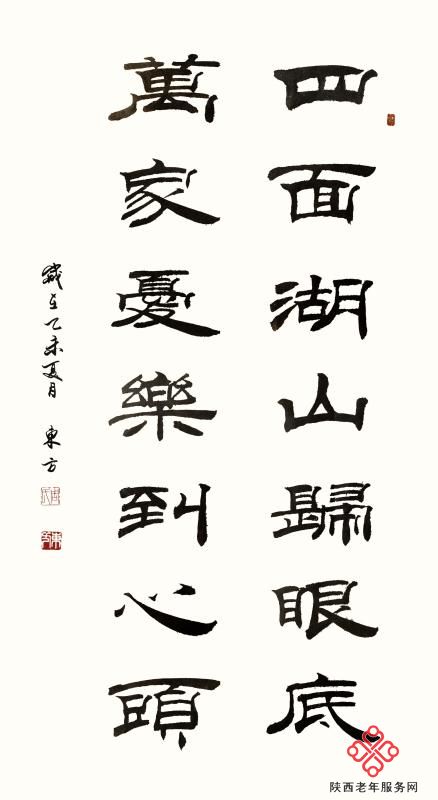 四面湖山歸眼底
萬家憂樂到心頭
歲在乙未夏月 東方
陕西老年服务网